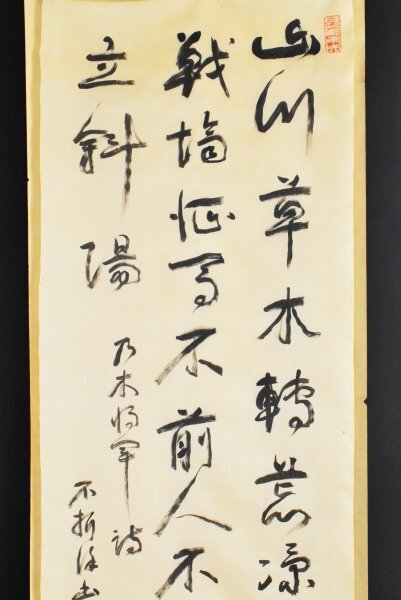 山川草木轉荒涼
戰場征馬不前人不
立斜陽
乃木将軍詩
不折